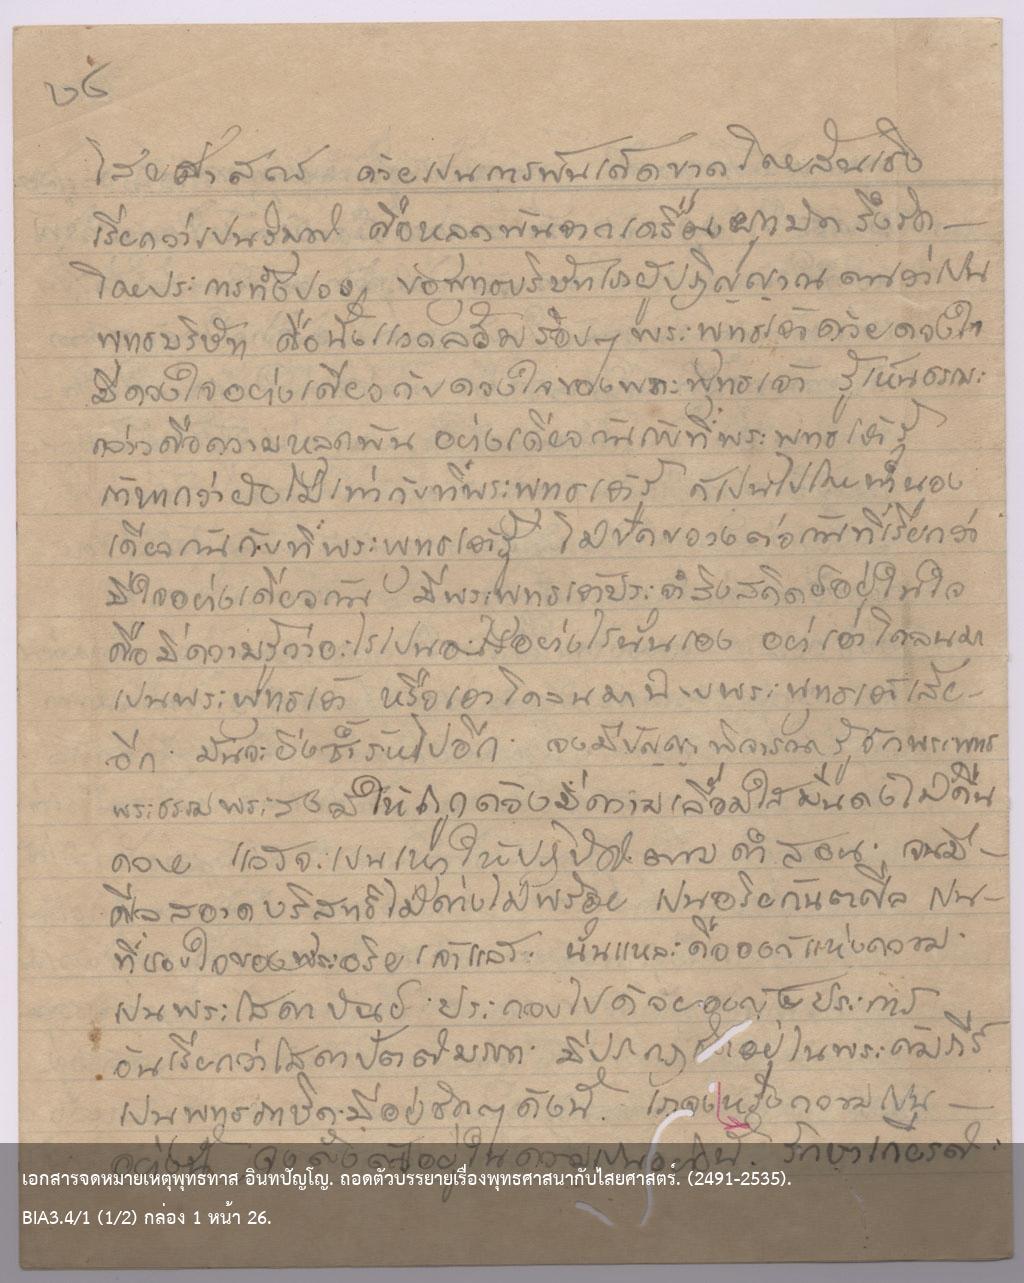 ๒๖
ไสยศาสตร์ ด้วยเป็นการพ้นเด็ดขาด โดยสิ้นเชิง
เรียกว่าเป็นวิมุตติ คือหลุดพ้นจากเครื่องผูกมัด รึงรัด
โดยประการทั้งปวง ขอพุทธบริษัทเราผู้ปฏิญญาณตนว่าเป็น
พุทธบริษัท คือนั่งแวดล้อมรอบๆ พระพุทธเจ้าด้วยดวงใจ
มีดวงใจอย่างเดียวกับดวงใจของพระพุทธเจ้า รู้เห็นธรรมะ
กล่าวคือความหลุดพ้น อย่างเดียวกันกับที่พระพุทธเจ้ารู้
ถ้าหากว่ายังไม่เท่ากับที่พระพุทธเจ้ารู้ ก็เป็นไปในทำนอง
เดียวกันกับที่พระพุทธเจ้ารู้ ไม่ขัดขวางต่อกันที่เรียกว่า
มีใจอย่างเดียวกัน มีพระพุทธเจ้าประจำสิงสถิตย์อยู่ในใจ
คือมีความรู้ว่าอะไรเป็นอะไรอย่างไรนั่นเอง อย่าเอาโคลนมา
เป็นพระพุทธเจ้า หรือเอาโคลนมา พระพุทธเจ้าเสีย
อีก มันจะยิ่งซ้ำร้ายไปอีก จงมีปัญญาพิจารณา รู้จักพระพุทธ
พระธรรมพระสงฆ์ให้ถูกต้องมีความเลื่อมใสมั่นคงไม่คืน
คลาย แล้วจะเป็นเหตุให้ปฏิบัติตามคำสอน จนมี
ศีลสะอาดบริสุทธิ์ไม่ด่างไม่พร้อย เป็นอริยกันตศีล เป็น
ที่ชอบใจของพระอริยเจ้าแล้ว นั่นแหละคือองค์แห่งความ
เป็นพระโสดาบันย์ ประกอบไปด้วยองค์ ๔ ประการ
อันเรียกว่าโสดาปัตติมรรค มีปรากฏชัดอยู่ในพระคัมภีร์
เป็นพุทธภาษิตมีอยู่ชัดๆ ดังนี้ เราจงหวังความเป็น
อย่างนี้ จงตั้งตนอยู่ในความเป็นอย่างนี้ รักษาเกียรติ
เอกสารจดหมายเหตุพุทธทาส อินทปัญโญ. ถอดตัวบรรยายเรื่องพุทธศาสนากับไสยศาสตร์. (2491-2535).
BIA3.4/1 (1/2) กล่อง 1 หน้า 26.